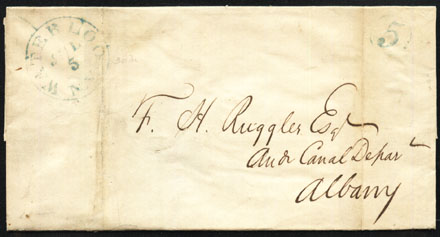 WATERLOO N.Y.
JUL
5
5
F. H. Ruggles Esqr
Audr Canal Depart
Albany